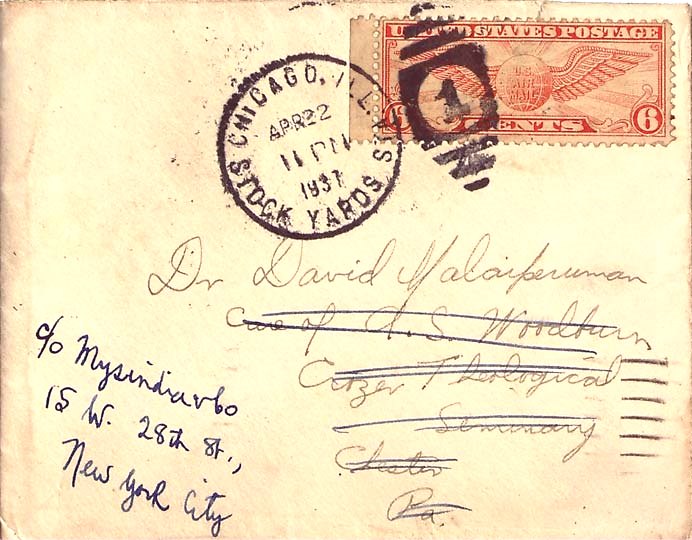 UNITED STATES POSTAGE
U.S. AIR MAIL
6 CENTS 6
1
CHICAGO, ILL.
APR 22
11 PM
1937
STOCK YARDS STA.
Dr David Malaiperuman
Care of A. S. Woodburn
Crozer Theological
Seminary
Chester
Pa.
c/o Mysindiavbo
15 W. 28th St.,
New York City